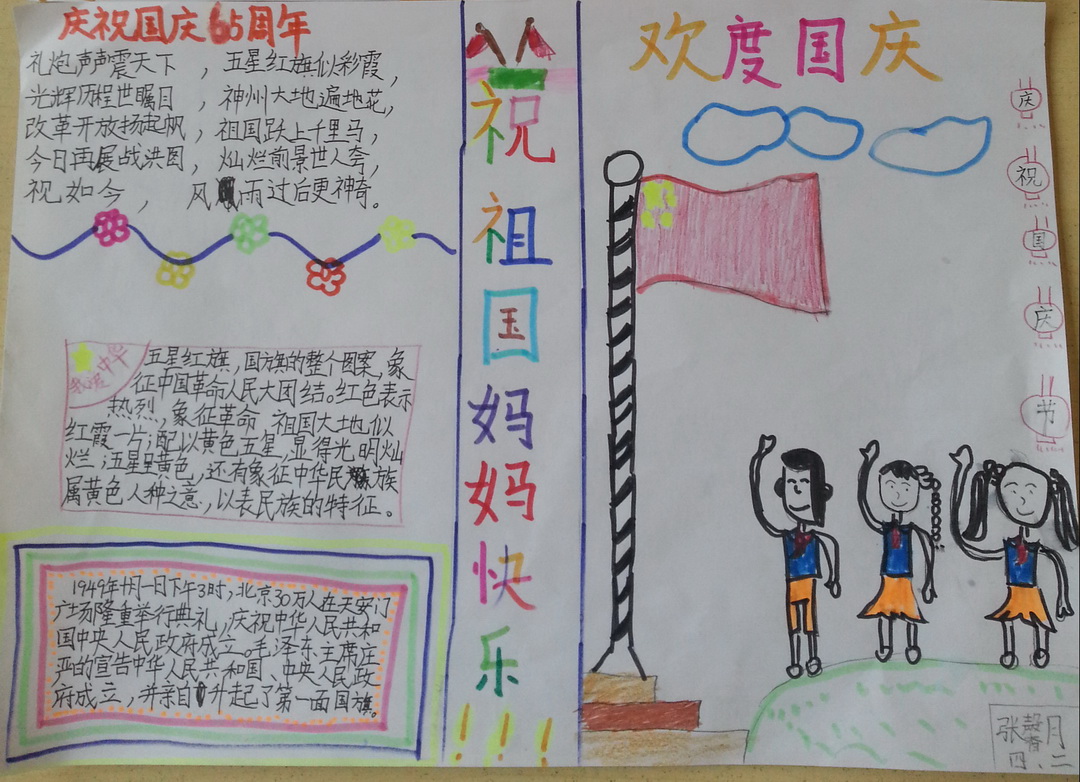 庆祝国庆65周年
礼炮声声震天下，五星红旗似彩霞，
光辉历程世瞩目，神州大地遍地花，
改革开放扬起帆，祖国跃上千里马，
今日再展战洪图，灿烂前景世人夸，
祝如今，风雨过后更神奇。
中华
五星红旗，国旗的整个图案，象
征中国革命人民大团结。红色表示
热烈，象征革命，祖国大地似
红霞一片；配以黄色五星，显得光明灿
烂；五星呈黄色，还有象征中华民族
属黄色人种之意，以表民族的特征。
1949年十月一日下午3时，北京30万人在天安门
广场隆重举行典礼，庆祝中华人民共和
国中央人民政府成立。毛泽东主席庄
严的宣告中华人民共和国、中央人民政
府成立，并亲自升起了第一面国旗。
祝祖国妈妈快乐!!!
欢度国庆
庆
祝
国
庆
节
张馨月
四、二